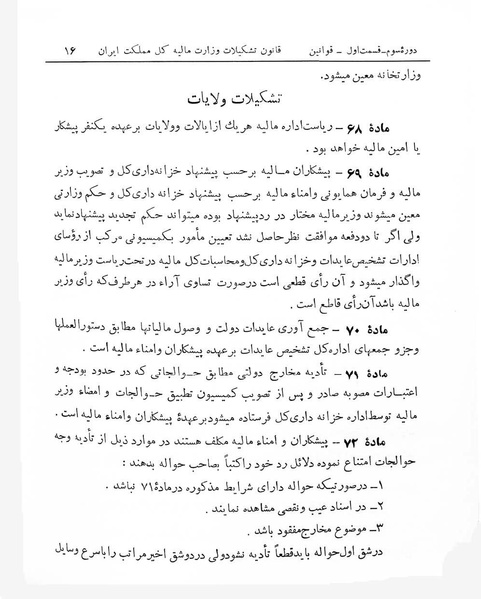 دورهٔ سوم ـ قسمت اول ـ قوانین    قانون تشکیلات وزارت مالیه کل مملکت ایران    ۱۶
وزارتخانه معین میشود.
تشکیلات ولایات
مادهٔ ۶۸ – ریاست اداره مالیه هریك از ایالات وولایات برعهده یکنفر پیشکار
یا امین مالیه خواهد بود .
مادهٔ ۶۹ – پیشکاران مالیه برحسب پیشنهاد خزانه‌داری‌کل و تصویب وزیر
مالیه و فرمان همایونی وامناء مالیه برحسب پیشنهاد خزانه داری‌کل و حکم وزارتی
معین میشوند وزیرمالیه مختار در ردپیشنهاد بوده میتواند حکم تجدید پیشنهادنماید
ولی اگر تا دودفعه موافقت نظرحاصل نشد تعیین مأمور بکمیسیونی مرکب از رؤسای
ادارات تشخیص عایدات وخزانه داری‌کل ومحاسبات‌کل مالیه درتحت‌ریاست وزیرمالیه
واگذار میشود و آن رأی قطعی است درصورت تساوی آراء در هرطرف‌که رأی وزیر
مالیه باشدآن‌رأی قاطع است .
مادهٔ ۷۰ – جمع آوری عایدات دولت و وصول مالیاتها مطابق دستورالعملها
وجزو جمعهای اداره‌کل تشخیص عایدات برعهده پیشکاران وامناء مالیه است .
مادهٔ ۷۱ – تأدیه مخارج دولتی مطابق حوالجاتی که در حدود بودجه و
اعتبارات مصوبه صادر و پس از تصویب کمیسیون تطبیق حوالجات و امضاء وزیر
مالیه توسط‌اداره خزانه داری‌کل فرستاده میشودبرعهدهٔ پیشکاران وامناء مالیه است .
مادهٔ ۷۲ – پیشکاران و امناء مالیه مکلف هستند در موارد ذیل از تأدیه وجه
حوالجات امتناع نموده دلائل رد خود راکتباً بصاحب حواله بدهند :
۱ـ درصورتیکه حواله دارای شرایط مذکوره درمادهٔ ۷۱ نباشد .
۲ـ در اسناد عیب ونقصی مشاهده نمایند .
۳ـ موضوع مخارج‌مفقود باشد .
درشق اول‌حواله بایدقطعاً تأدیه نشودولی دردوشق اخیرمراتب را باسرع وسایل